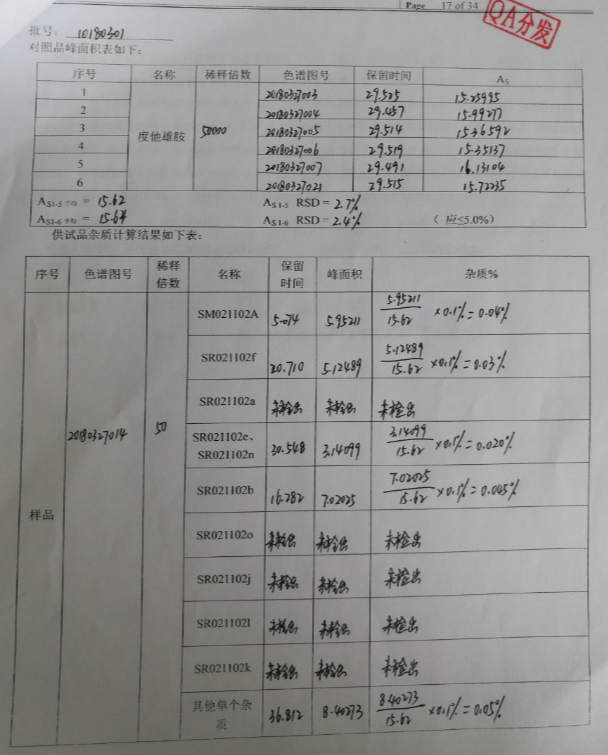 Page 17 of 34
QA分发
批号: 10180301
对照品峰面积表如下:
序号 名称 稀释倍数 色谱图号 保留时间 As
1 20180327003 29.525 15.25995
2 20180327004 29.457 15.99277
3 度他雄胺 50000 20180327005 29.514 15.36592
4 20180327006 29.519 15.35137
5 20180327007 29.491 16.13104
6 20180327021 29.515 15.72235
AS1-5 平均 = 15.62 AS1-5 RSD = 2.7%
AS1-6 平均 = 15.64 AS1-6 RSD = 2.4% ( 应≤5.0%)
供试品杂质计算结果如下表:
序号 色谱图号 稀释倍数 名称 保留时间 峰面积 杂质%
样品 20180327014 50
SM021102A 5.074 5.95211 5.95211/15.62 ×0.1%=0.04%
SR021102f 20.710 5.12489 5.12489/15.62 ×0.1%=0.03%
SR021102a 未检出 未检出 未检出
SR021102e、SR021102n 30.548 3.14099 3.14099/15.62 ×0.1%=0.020%
SR021102b 16.282 7.02025 7.02025/15.62 ×0.1%=0.045%
SR021102o 未检出 未检出 未检出
SR021102j 未检出 未检出 未检出
SR021102l 未检出 未检出 未检出
SR021102k 未检出 未检出 未检出
其他单个杂质 36.812 8.40273 8.40273/15.62 ×0.1%=0.05%